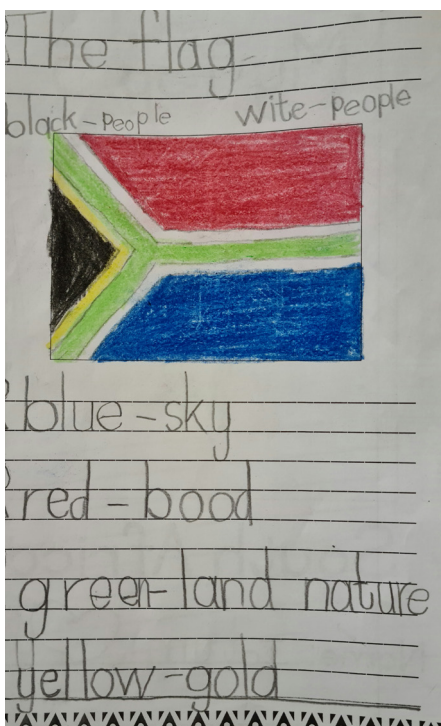 The flag
black-people wite-people
blue-sky
red-bood
green-land nature
yellow-gold